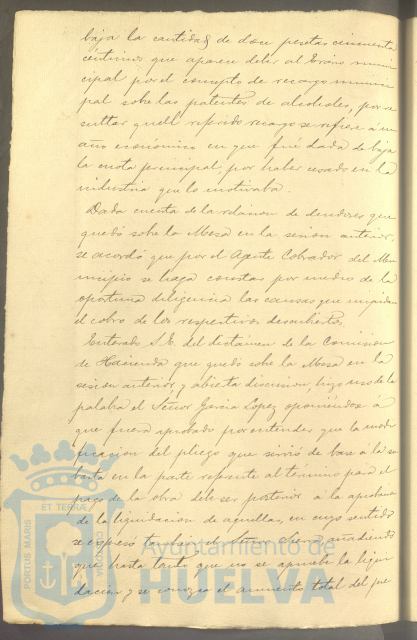 baja la cantidad de doce pesetas cincuenta
centimos que aparece deber al Erario muni
cipal por el concepto de recargo munici
pal sobre las patentes de alcoholes, por re
sultar que el referido recargo se refiere á un
año economico en que fué dada de baja
la cuota principal, por haber cesado en la
industria que lo motivaba.
Dada cuenta de la relacion de deudores que
quedó sobre la Mesa en la sesion anterior,
se acordó que por el Agente Cobrador del Mu
nicipio se haga constar por medio de la
oportuna diligencia las causas que impiden
el cobro de los respectivos descubiertos.
Enterado S.E. del dictamen de la Comision
de Hacienda que quedó sobre la Mesa en la
sesion anterior, y abierta discusion, hizo uso de la
palabra el Señor Garcia Lopez oponiendose á
que fuera aprobado por entender que la modi
ficacion del pliego que sirvió de base á la su
basta en la parte referente al término para el
pago de la obra debe ser posterior á la aprobacion
de la liquidacion de aquellas, en cuyo sentido
se expresó tambien el Señor añadiendo
que hasta tanto que no se apruebe la liqui
dacion y se conozca el aumento total del pre
PORTUS MARIS
ET TERRÆ
Ayuntamiento de
HUELVA